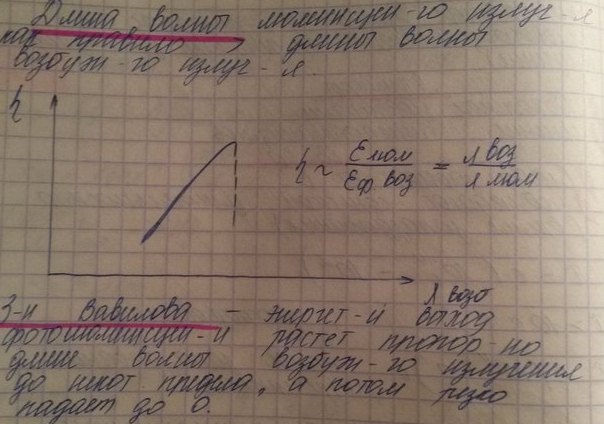 Длина волны люминисцен-го излуч-я
как правило > длины волны
возбуж-го излуч-я.
η
η ~ Eлюм / Eф.воз = λ воз / λ люм
λ возб
З-н Вавилова - энергет-й выход
фотолюминисцен-и растет пропор-но
длине волны возбуж-го излучения
до некот. придела, а потом резко
падает до 0.